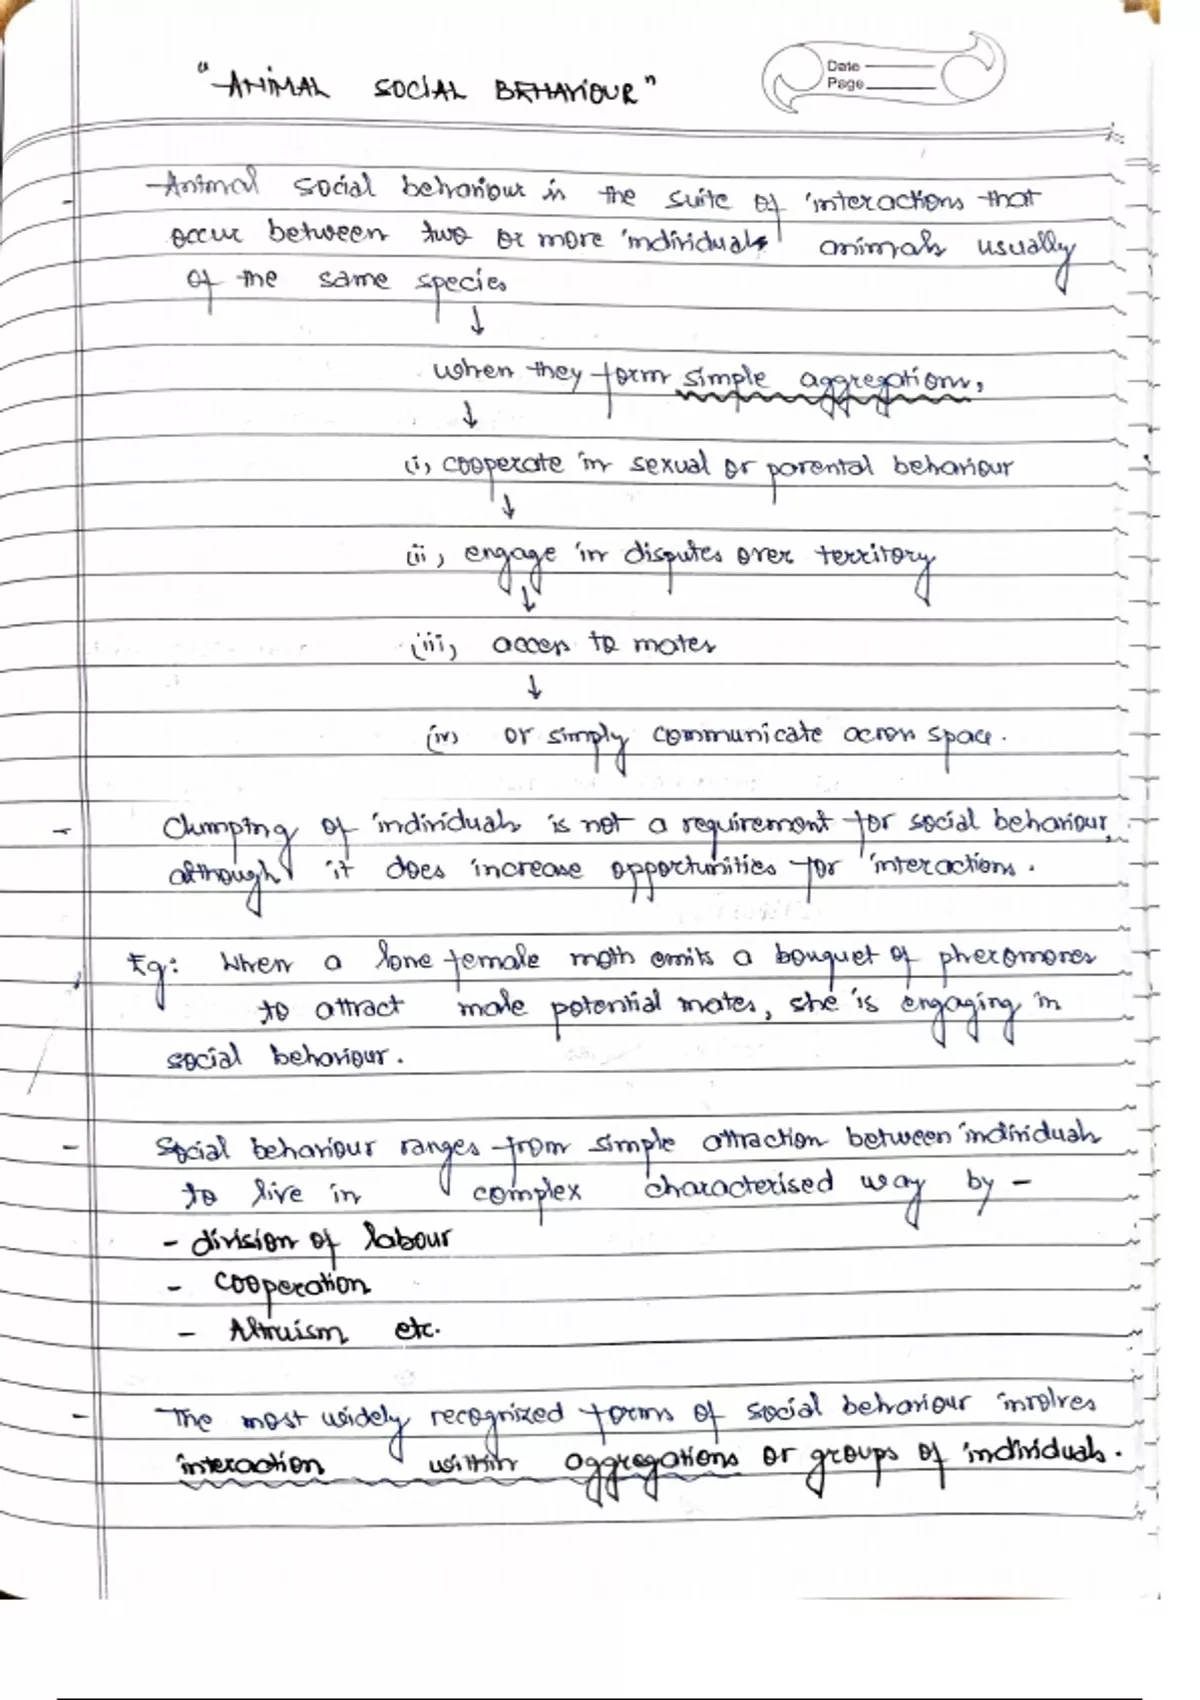 "ANIMAL SOCIAL BEHAVIOUR"
Date
Page
- Animal social behaviour is the suite of interactions that
occur between two or more individuals animals usually
of the same species
↓
when they form simple aggregations,
↓
(i) cooperate in sexual or parental behaviour
↓
(ii) engage in disputes over territory
↓
(iii) access to mates
↓
(iv) or simply communicate across space.
- Clumping of individuals is not a requirement for social behaviour,
although it does increase opportunities for interactions.
Eg: When a lone female moth emits a bouquet of pheromones
to attract male potential mates, she is engaging in
social behaviour.
- Social behaviour ranges from simple attraction between individuals
to live in complex characterised way by -
- division of labour
- cooperation
- Altruism etc.
- The most widely recognized forms of social behaviour involves
interaction within aggregations or groups of individuals.